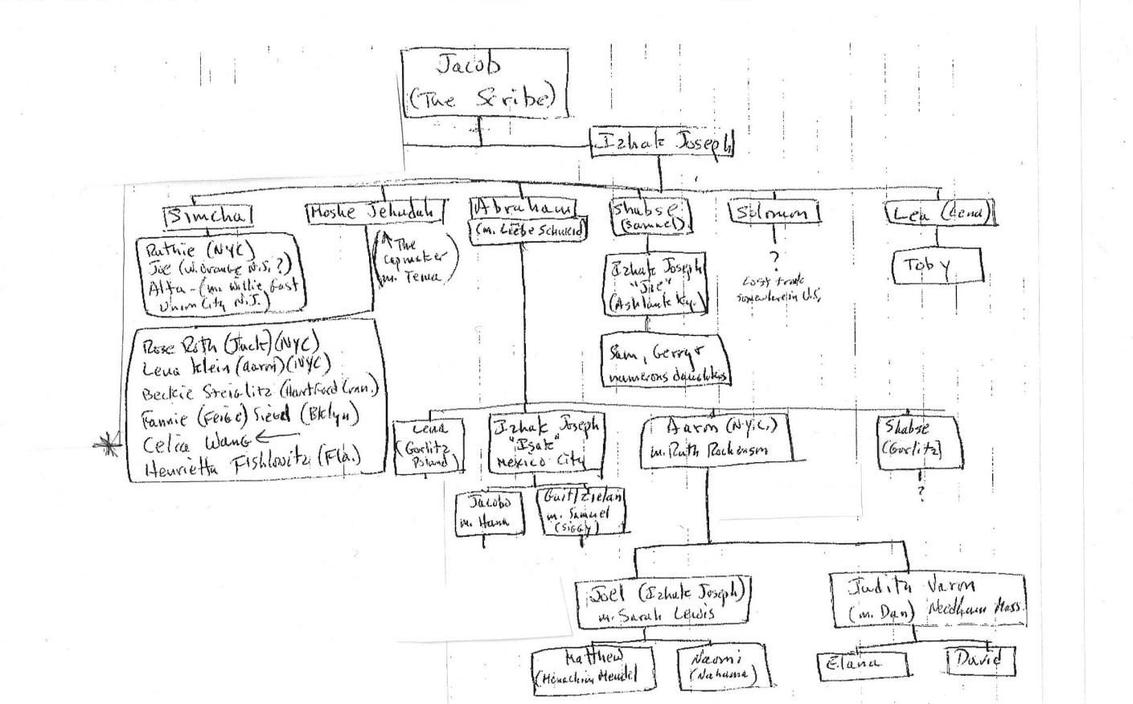 Jacob
(The Scribe)
Izhak Joseph
Simcha
Moshe Jehudah
Abraham
(m. Liebe Schweid)
Shabse
(Samuel)
Solomon
Lea (Lena)
Ruthie (NYC)
Joe (W. Orange N.J. ?)
Alta - (m. Willie Gast
Union City N.J.)
(The
Capmaker
m. Tema)
Izhak Joseph
"Joe"
(Ashland Ky.)
?
Lost track
somewhere in U.S.
Toby
Sam, Gerry +
numerous daughters
Rose Roth (Jack) (NYC)
Lena Klein (Aaron) (NYC)
Beckie Steiglitz (Hartford Conn.)
Fannie (Feige) Siegel (Bklyn)
Celia Wang
Henrietta Fishlowitz (Fla.)
Lena
(Gorlitz
Poland)
Izhak Joseph
"Izak"
Mexico City
Aaron (N.Y.C.)
m. Ruth
Shabse
(Gorlitz)
?
Jacobo
m. Hana
m. Samuel
(Siggy)
Joel (Izhak Joseph)
m. Sarah Lewis
Judith Varon
(m. Dan) Needham Mass.
Matthew
(Menachim Mendel
Naomi
(Nahama)
Elana
David